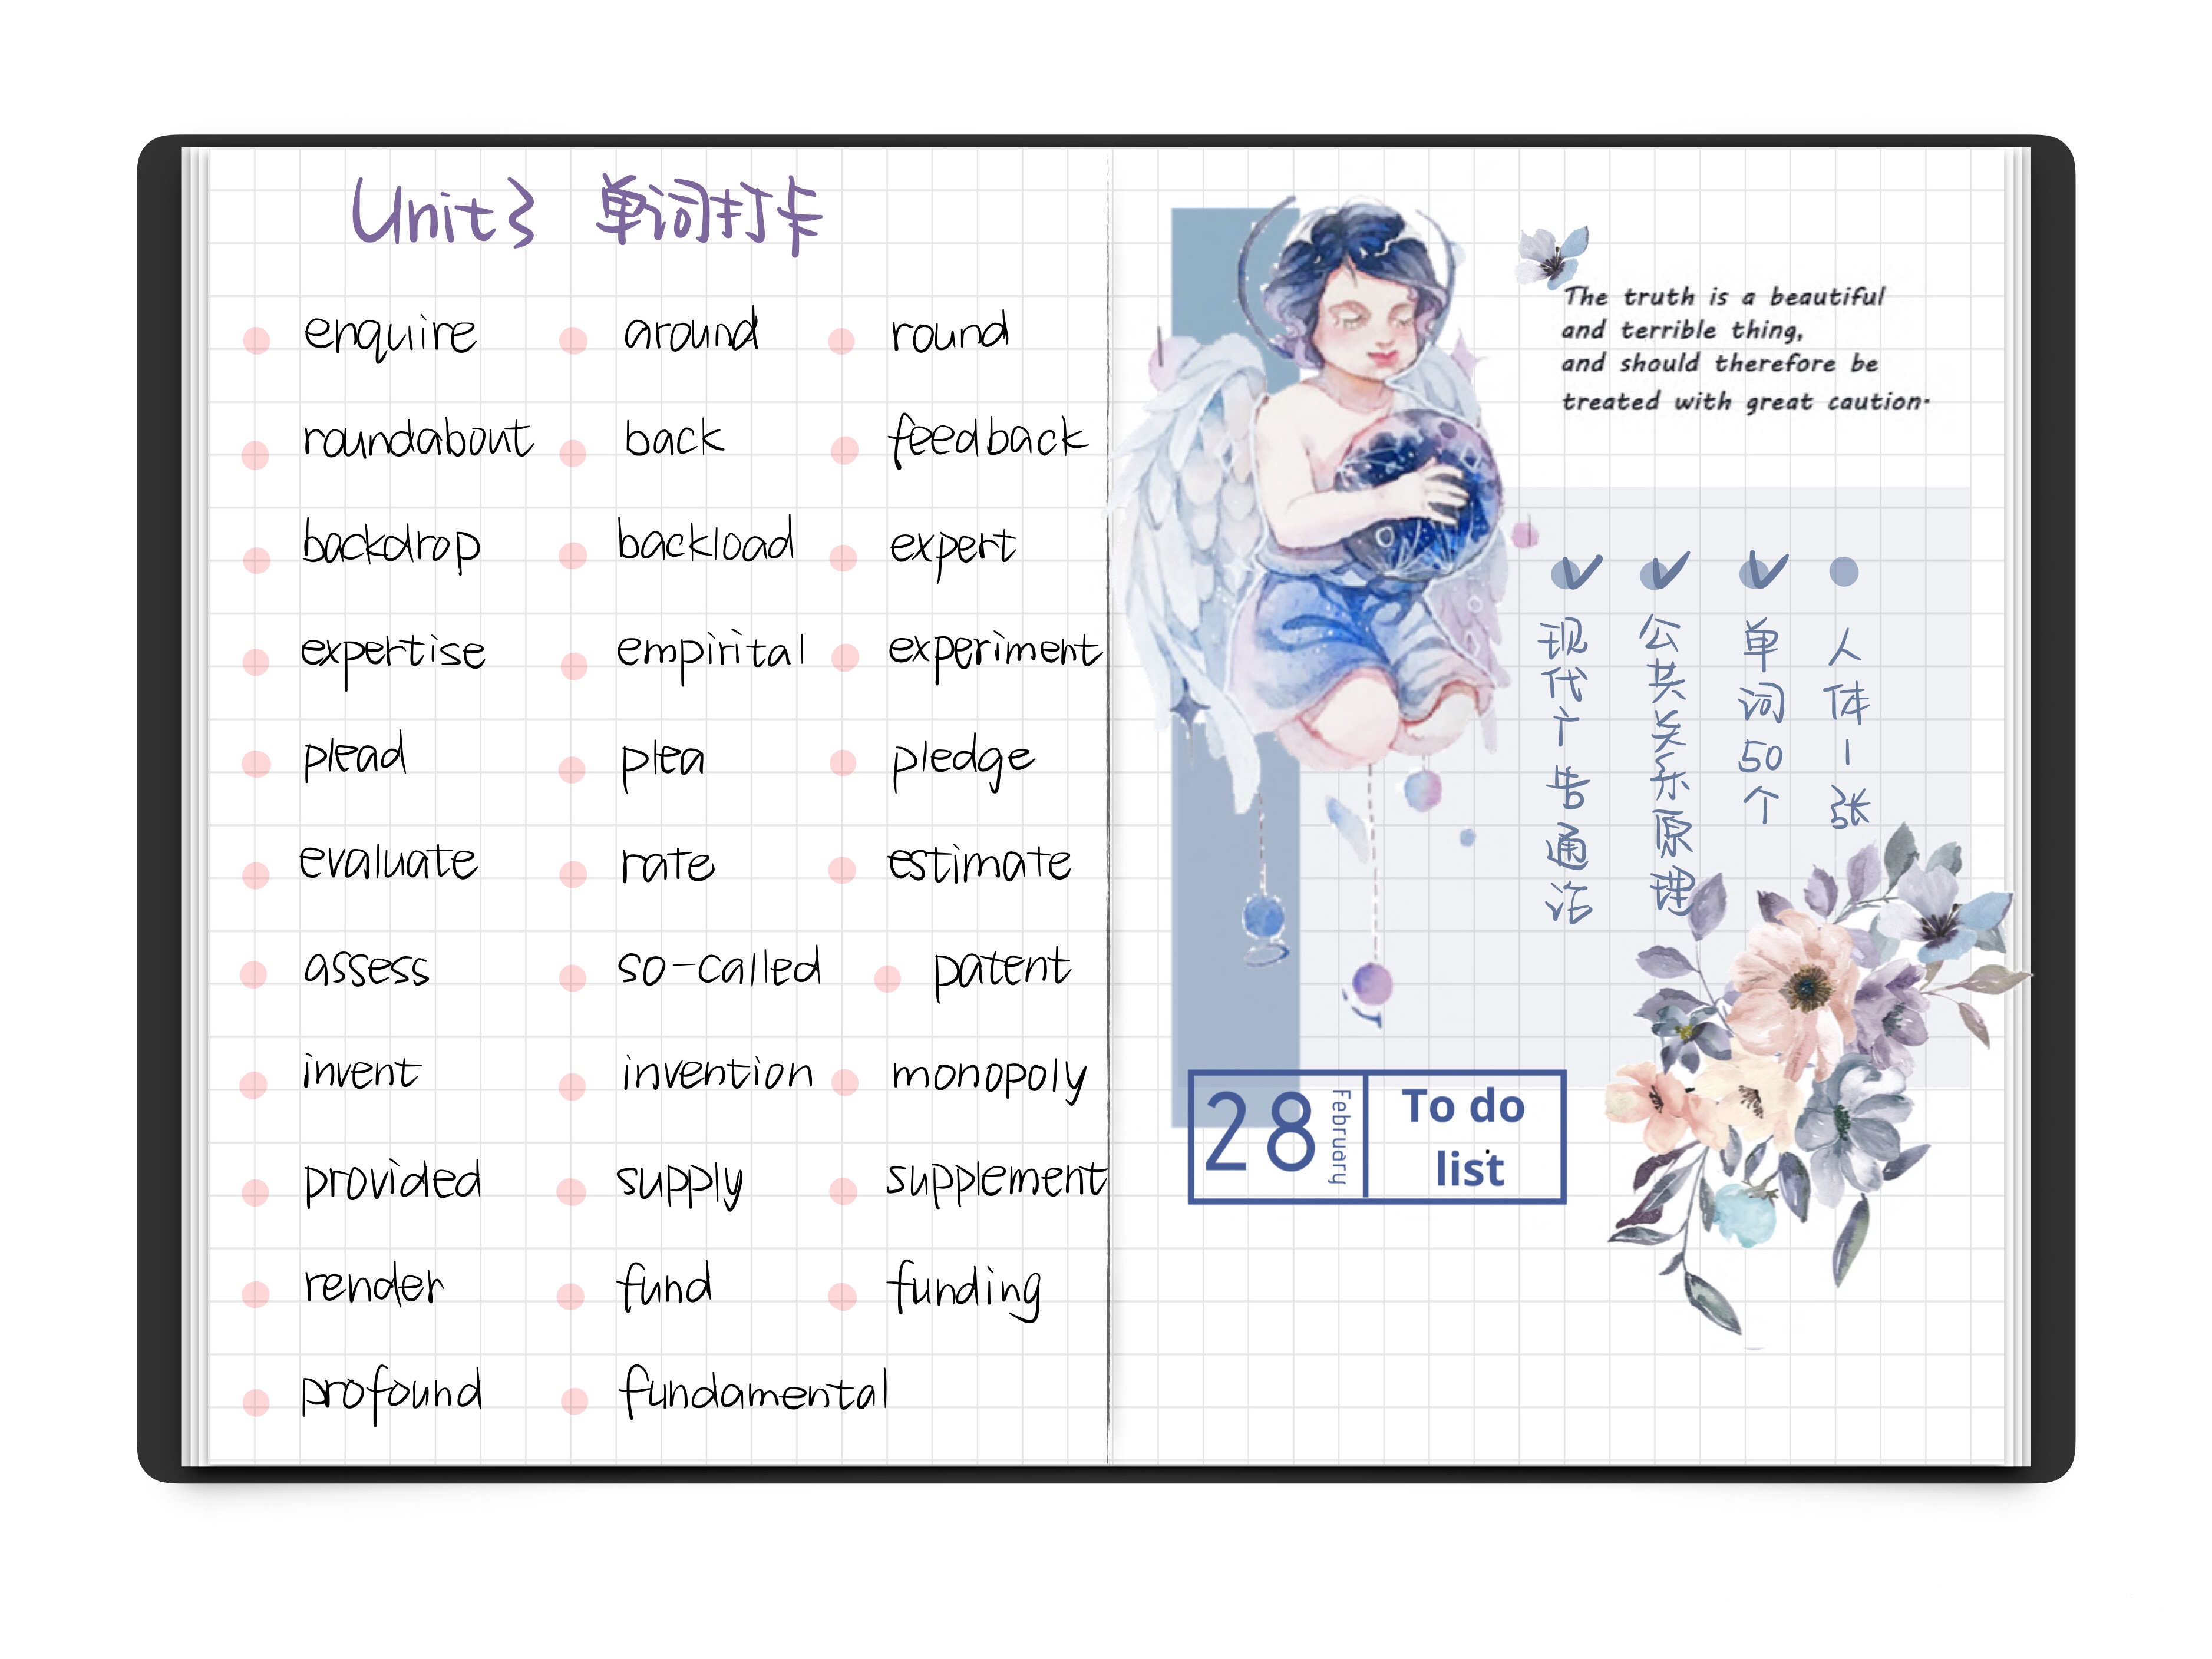 Unit3 单词打卡
enquire around round
roundabout back feedback
backdrop backload expert
expertise empirital experiment
plead plea pledge
evaluate rate estimate
assess so-called patent
invent invention monopoly
provided supply supplement
render fund funding
profound fundamental
The truth is a beautiful
and terrible thing,
and should therefore be
treated with great caution.
现代广告通论
公共关系原理
单词50个
人体1张
28 February
To do
list